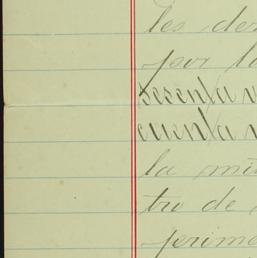 les der
por la
sesenta
cuenta
la mi
tro de
perime